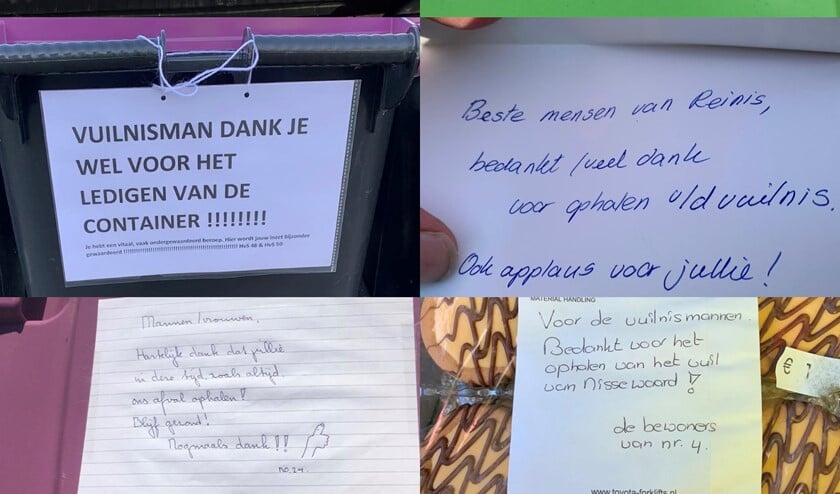 VUILNISMAN DANK JE
WEL VOOR HET
LEDIGEN VAN DE
CONTAINER !!!!!!!!
Je hebt een vitaal, vaak ondergewaardeerd beroep. Hier wordt jouw inzet bijzonder
gewaardeerd !!!!!!!!!!!!!!!!!!!!!!!!!!!!!!!!!!!!!!!!!!!!!!!!!! HvS 48 & HvS 50
Beste mensen van Reinis,
bedankt / veel dank
voor ophalen v/d vuilnis.
Ook applaus voor jullie!
Mannen/vrouwen,
Hartelijk dank dat jullie
in deze tijd, zoals altijd,
ons afval ophalen!
Blijf gezond!
Nogmaals dank!!
no. 24.
MATERIAL HANDLING
Voor de vuilnismannen.
Bedankt voor het
ophalen van het vuil
van Nissewaard!
de bewoners
van nr. 4.
www.toyota-forklifts.nl
€ 1